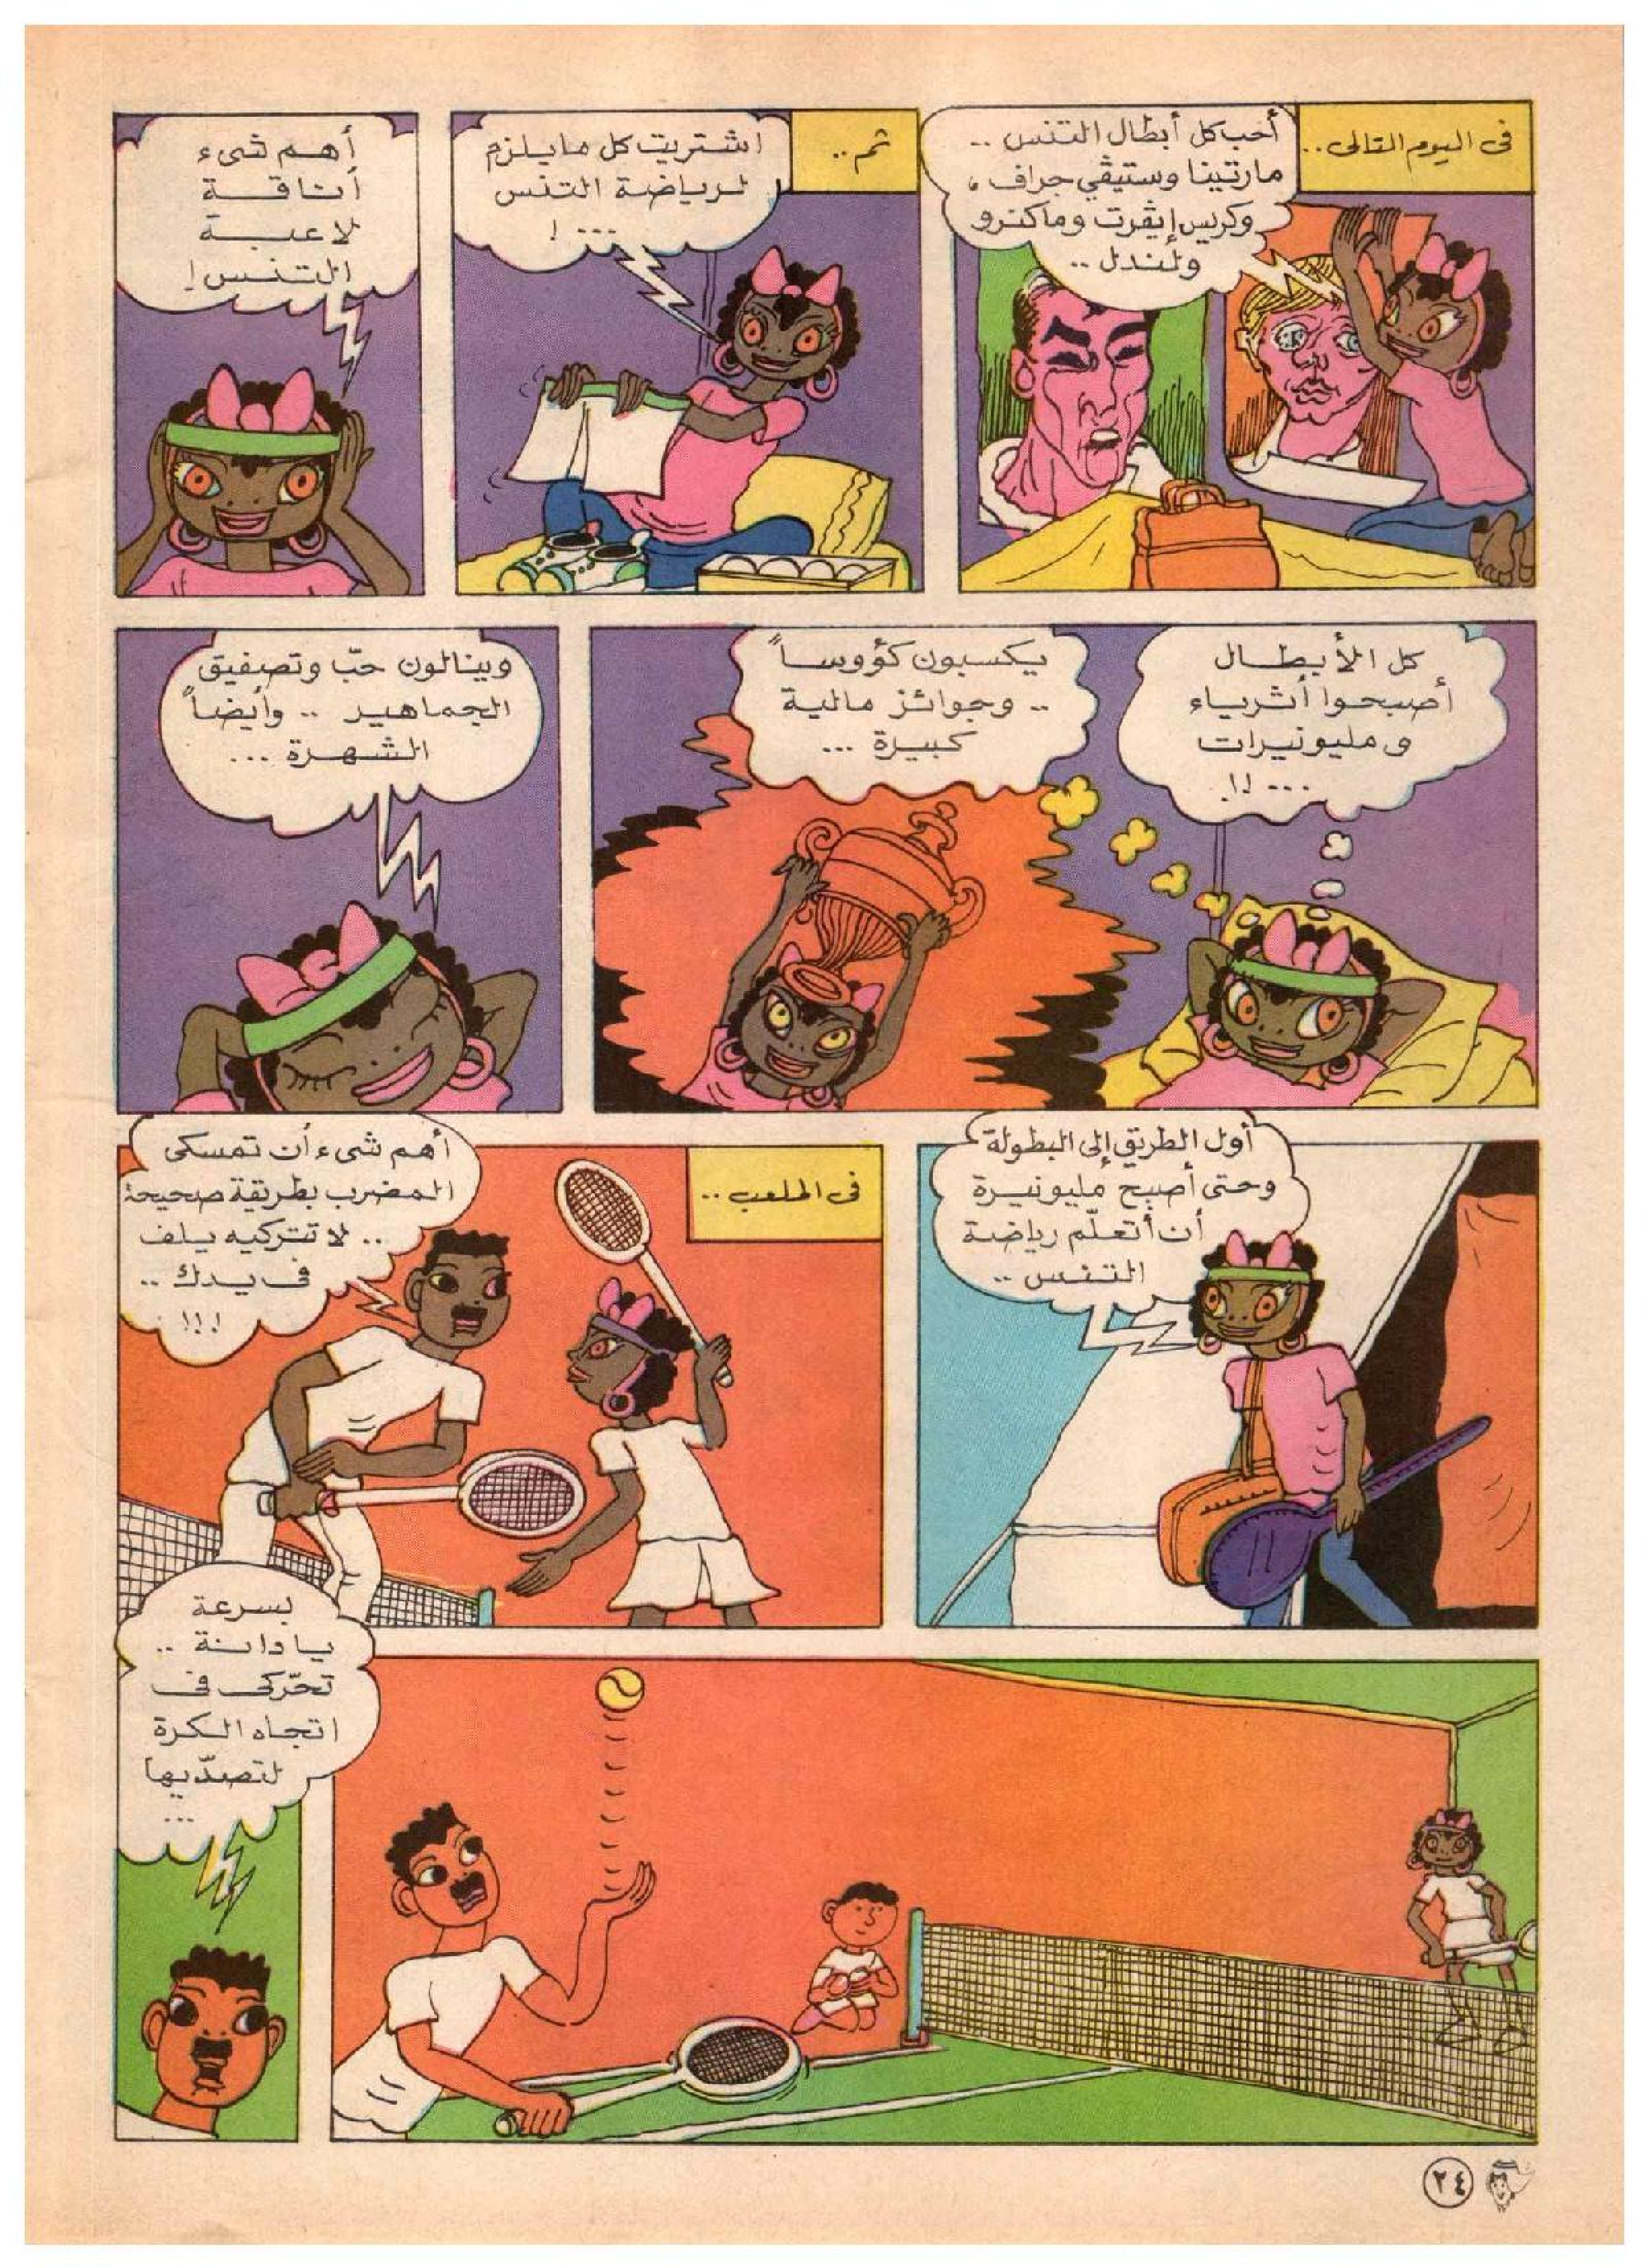 فى اليوم التالى..
أحب كل أبطال التنس ..
مارتينا وستيڤي جراف ،
وكريس إيڤرت وماكنرو
ولندل ..
ثم ..
اشتريت كل ما يلزم
لرياضة التنس
... !
أهم شىء
أناقة
لاعبة
التنس !
كل الأبطال
أصبحوا أثرياء
و مليونيرات
... !!
يكسبون كؤوساً
.. وجوائز مالية
كبيرة ...
وينالون حبّ وتصفيق
الجماهير .. وأيضاً
الشهرة ...
أول الطريق إلى البطولة
وحتى أصبح مليونيرة
أن أتعلّم رياضة
التنس ..
فى الملعب ..
أهم شىء أن تمسكى
المضرب بطريقة صحيحة
.. لا تتركيه يلف
فى يدك ..
!!!
بسرعة
يا دانة ..
تحّركى فى
اتجاه الكرة
لتصدّيها
...
٢٤